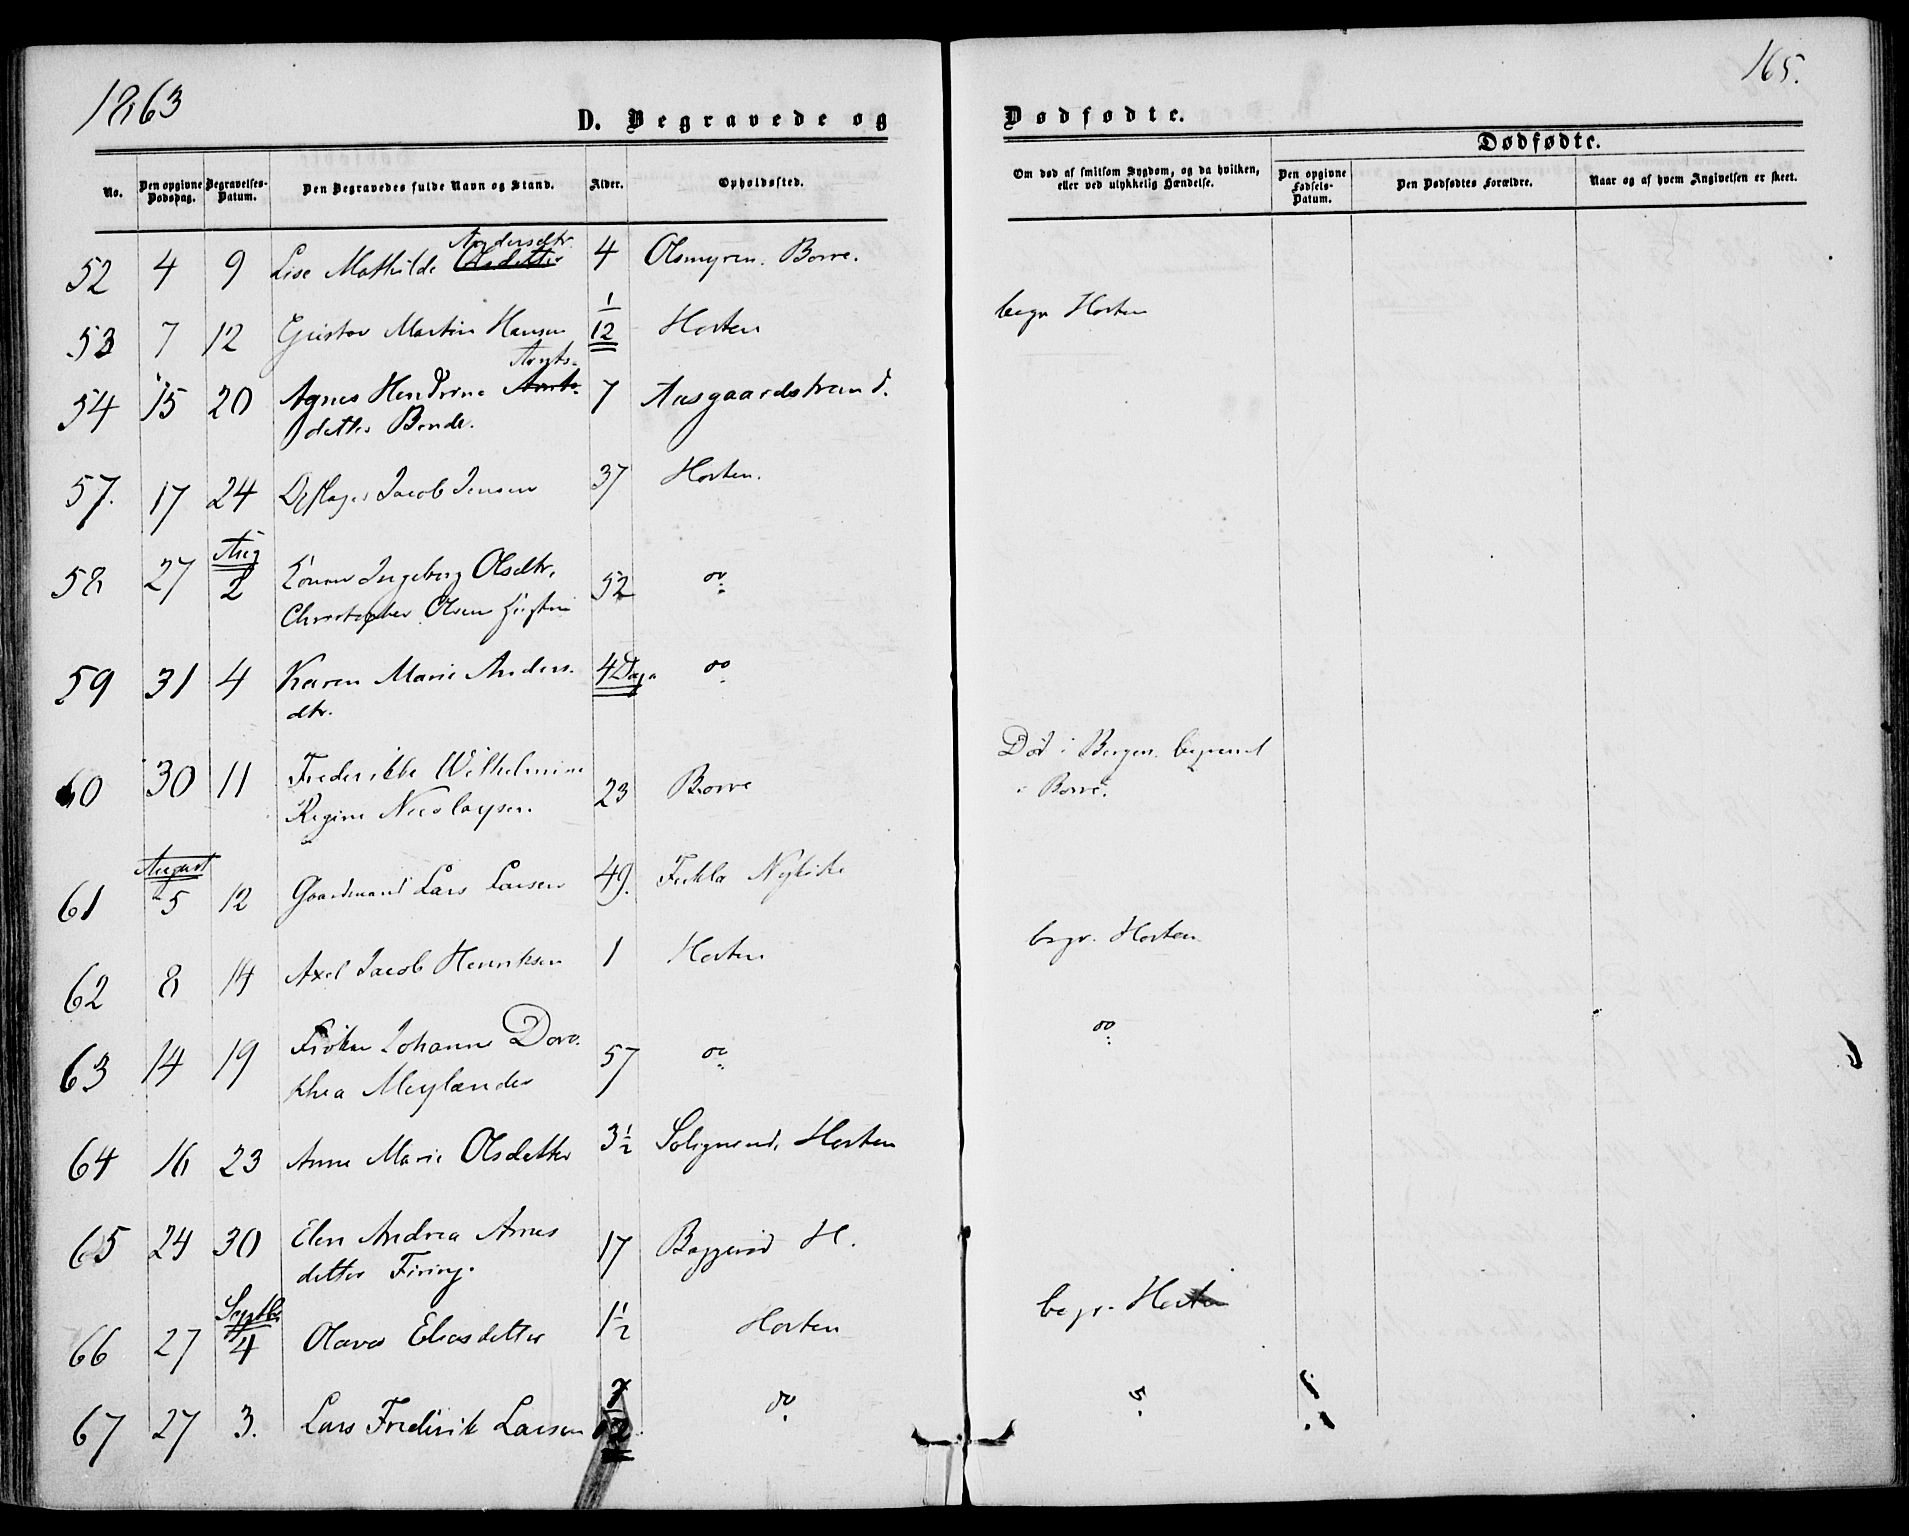 1863
165.
D. Begravede og
Dødfødte.
Dødfødte.
No.
Den opgivne Dødsdag.
Begravelses-Datum.
Den Begravedes fulde Navn og Stand.
Alder.
Opholdssted.
Om død af smitsom Sygdom, og da hvilken, eller ved ulykkelig Hændelse.
Den opgivne Fødsels-Datum.
Den Dødfødtes Forældre.
Naar og af hvem Angivelsen er skeet.
Andersdtr.
52 4 9 Lise Mathilde Olsdatter 4 Olsmyren. Borre.
53 7 12 Gustav Martin Hansen 1/12 Horten begr Horten
54 15 20 Agnes Hendrine 7 Aasgaardstrand.
datter Bende.
57. 17 24 Jacob Jensen 37 Horten.
Aug
58 27 2 Ingeborg Olsdtr. 52 do
Christopher Olsen
59 31 4 Karen Marie Anders- 4 Dage do
dtr.
60 30 11 Frederikke Wilhelmine 23 Borre Død i Bergen. begravet
Regine Nicolaysen. i Borre.
August
61 5 12 Gaardmand Lars Larsen 49. Nykirke
62 8 14 Axel Jacob Henriksen 1 Horten begr. Horten
63 14 19 Frøken Johanne Doro- 57 do do
thea Meylænder
64 16 23 Anne Marie Olsdatter 3 1/2 Horten
65 24 30 Elen Andrea Arnes 17 Baggerød H.
datter Firing.
Septbr
66 27 4 Olava Eliasdatter 1 1/2 Horten begr. Horten
67 27 3. Lars Fredirik Larsen 7/12 do